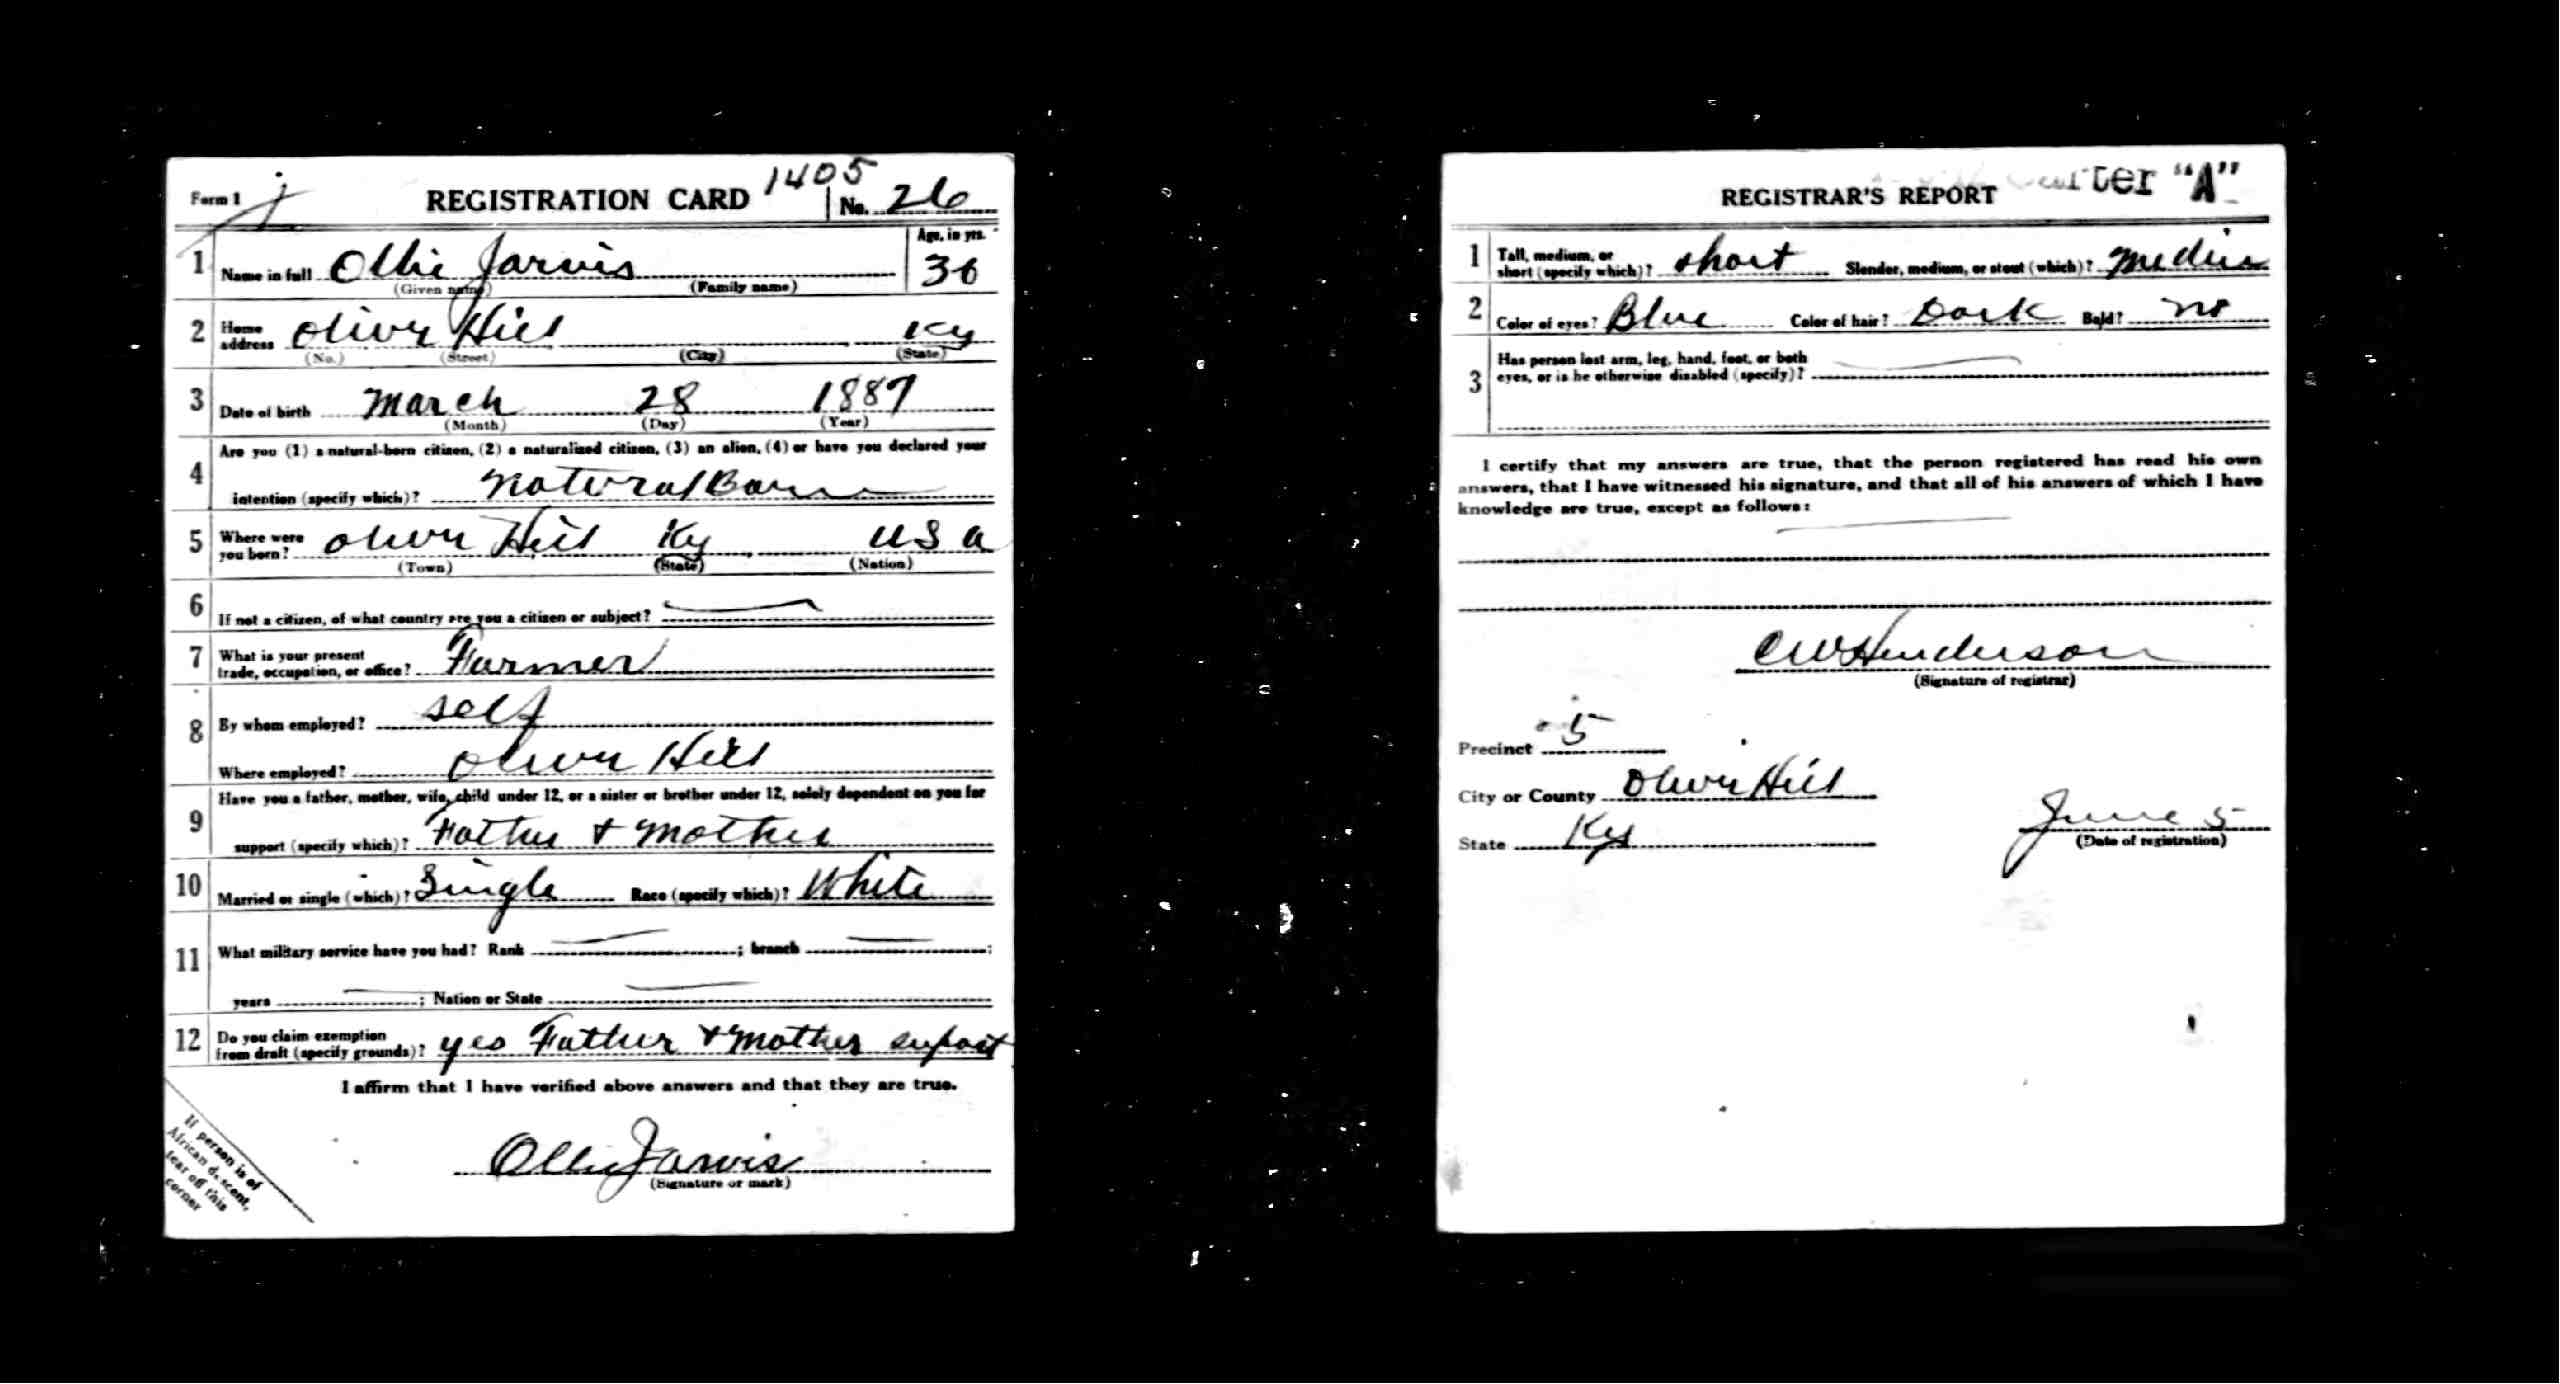 1405
Form 1 j REGISTRATION CARD No. 26
1 Name in full Ollie Jarvis Age, in yrs. 30
(Given name) (Family name)
2 Home address Olive Hill Ky
(No.) (Street) (City) (State)
3 Date of birth March 28 1887
(Month) (Day) (Year)
4 Are you (1) a natural-born citizen, (2) a naturalized citizen, (3) an alien, (4) or have you declared your
intention (specify which)? Natural Born
5 Where were you born? Olive Hill Ky USA
(Town) (State) (Nation)
6 If not a citizen, of what country are you a citizen or subject?
7 What is your present trade, occupation, or office? Farmer
8 By whom employed? self
Where employed? Olive Hill
9 Have you a father, mother, wife, child under 12, or a sister or brother under 12, solely dependent on you for
support (specify which)? Father + Mother
10 Married or single (which)? Single Race (specify which)? White
11 What military service have you had? Rank ; branch ;
years ; Nation or State
12 Do you claim exemption from draft (specify grounds)? yes Father + Mother suport
I affirm that I have verified above answers and that they are true.
Ollie Jarvis
(Signature or mark)
If person is of
African descent,
tear off this
corner
REGISTRAR'S REPORT "A"
1 Tall, medium, or short (specify which)? short Slender, medium, or stout (which)? Medium
2 Color of eyes? Blue Color of hair? Dark Bald? no
3 Has person lost arm, leg, hand, foot, or both
eyes, or is he otherwise disabled (specify)?
I certify that my answers are true, that the person registered has read his own
answers, that I have witnessed his signature, and that all of his answers of which I have
knowledge are true, except as follows:
CW Henderson
(Signature of registrar)
Precinct 5
City or County Olive Hill
State Ky June 5
(Date of registration)